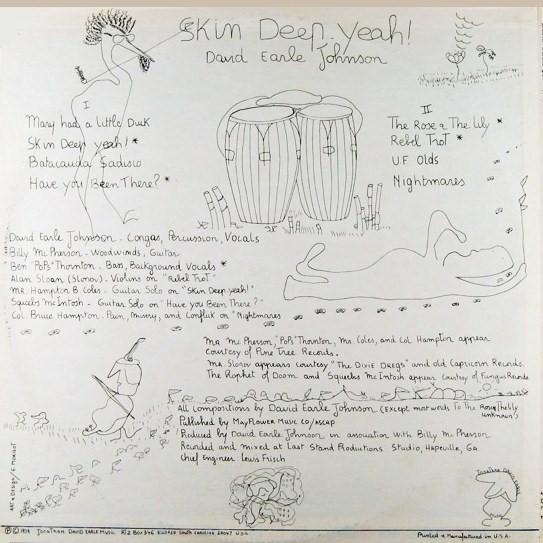 Skin Deep. yeah!
David Earle Johnson
I
Mary had a little Duck
Skin Deep yeah! *
Batacauda Sadisco
Have you Been There? *
II
The Rose & The Lily *
Rebel Trot *
UF Olds
Nightmares
David Earle Johnson - Congas, Percussion, Vocals
Billy McPherson - Woodwinds, Guitar
Ben "Pops" Thornton - Bass, Background Vocals *
Alan Sloan (Slonov) - Violins on "Rebel Trot"
Mr. Hampton B. Coles - Guitar Solo on "Skin Deep. yeah!"
Squeels McIntosh - Guitar Solo on "Have you Been There?"
Col Bruce Hampton - Pain, Misery, and Conflict on "Nightmares
Mr. McPherson, "Pops" Thornton, Mr. Coles, and Col Hampton appear
courtesy of Pine Tree Records.
Mr. Slonov appears courtesy "The Dixie Dregs" and old Capricorn Records.
The Prophet of Doom and Squeels McIntosh appear Courtesy of Fungus Records
All Compositions by David Earle Johnson (Except most words to The Rose/The Lily
unknown)
Published by MayFlower Music Co/ASCAP
Produced by David Earle Johnson in association with Billy McPherson
Recorded and mixed at Last Stand Productions Studio, Hapeville, Ga.
Chief Engineer Lewis Frisch
Art & Design /
Jonathan David Earle
℗ © 1978 Jonathan David Earle Music Rt 2 Box 346 South Carolina U.S.A.
Printed & Manufactured in U.S.A.